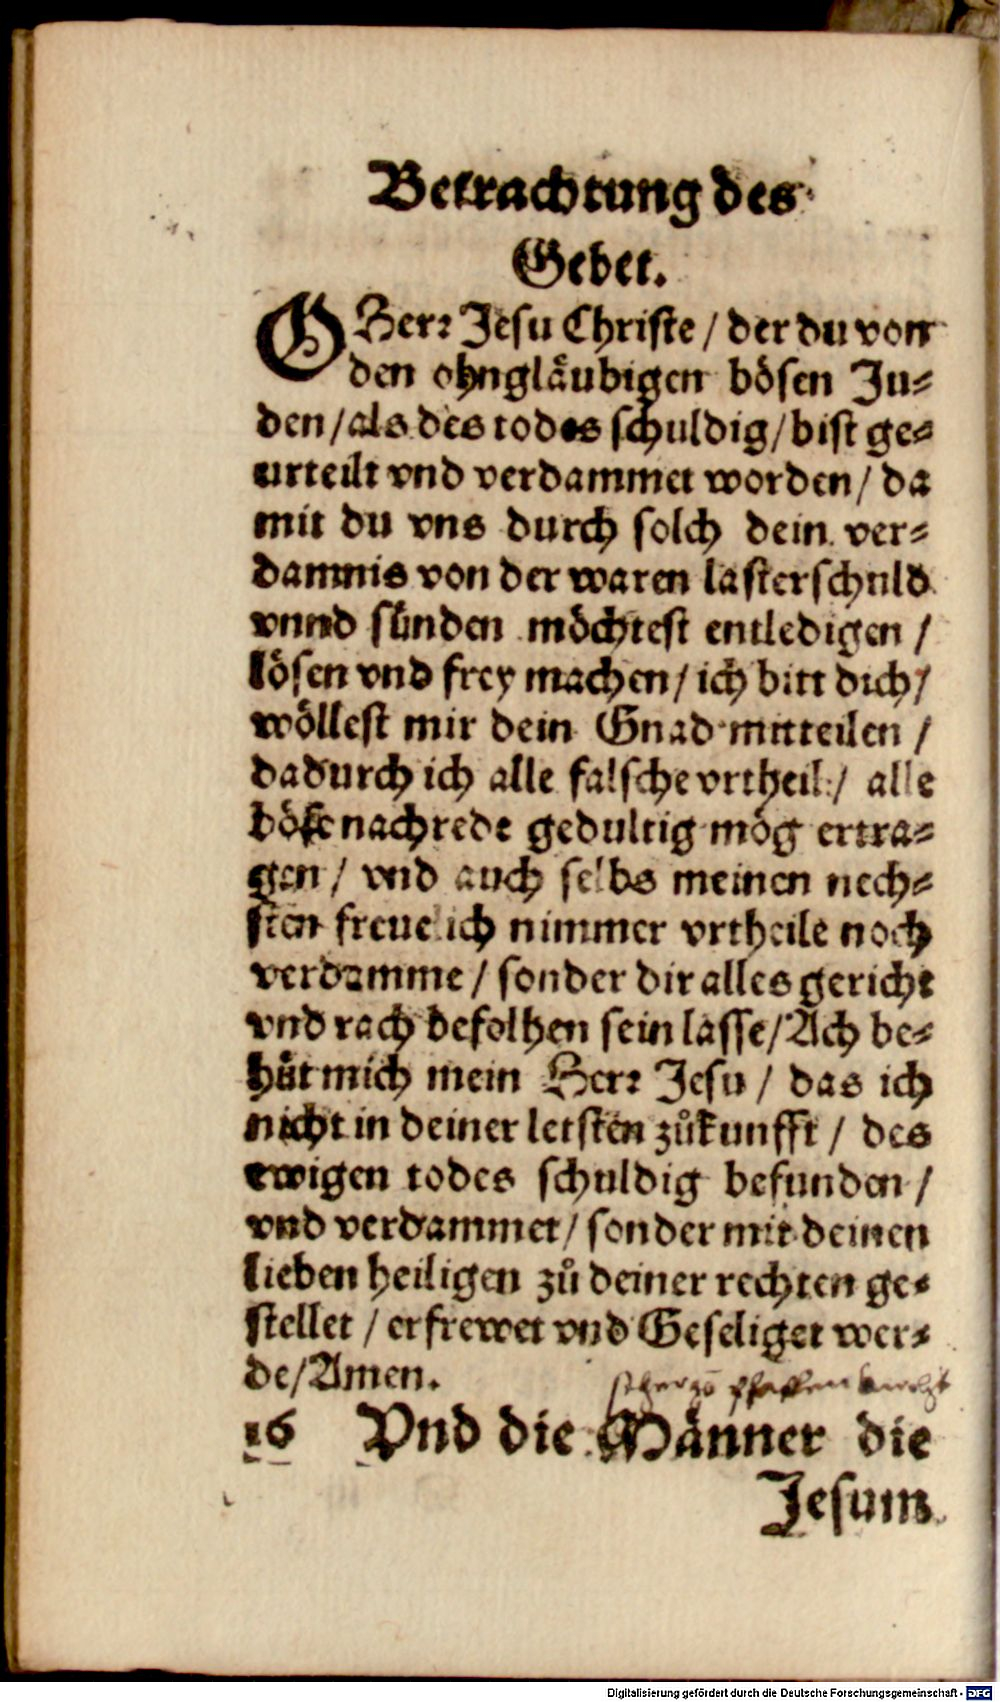 Betrachtung des
Gebet.
O Herr Jesu Christe / der du von
den ohngläubigen bösen Ju⸗
den / als des todes schuldig / bist ge⸗
urteilt vnd verdammet worden / da
mit du vns durch solch dein ver⸗
damnis von der waren lasterschuld
vnnd sünden möchtest entledigen /
lösen vnd frey machen / ich bitt dich /
wöllest mir dein Gnad mitteilen /
dadurch ich alle falsche vrtheil / alle
böse nachrede gedultig mög ertra⸗
gen / vnd auch selbs meinen nech⸗
sten freuelich nimmer vrtheile noch
verdamme / sonder dir alles gericht
vnd rach befolhen sein lasse / Ach be⸗
hüt mich mein Herr Jesu / das ich
nicht in deiner letsten zůkunfft / des
ewigen todes schuldig befunden /
vnd verdammet / sonder mit deinen
lieben heiligen zů deiner rechten ge⸗
stellet / erfrewet vnd Geseliget wer⸗
de / Amen.
16 Vnd die Männer die
Jesum
Digitalisierung gefördert durch die Deutsche Forschungsgemeinschaft - DFG